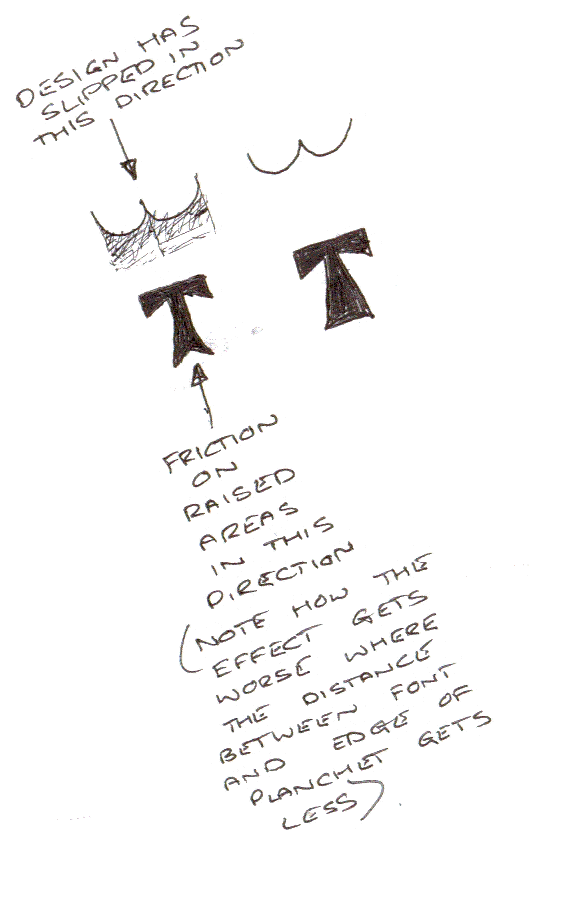 DESIGN HAS
SLIPPED IN
THIS DIRECTION
T
T
FRICTION
ON
RAISED
AREAS
IN THIS
DIRECTION
(NOTE HOW THE
EFFECT GETS
WORSE WHERE
THE DISTANCE
BETWEEN FONT
AND EDGE OF
PLANCHET GETS
LESS).